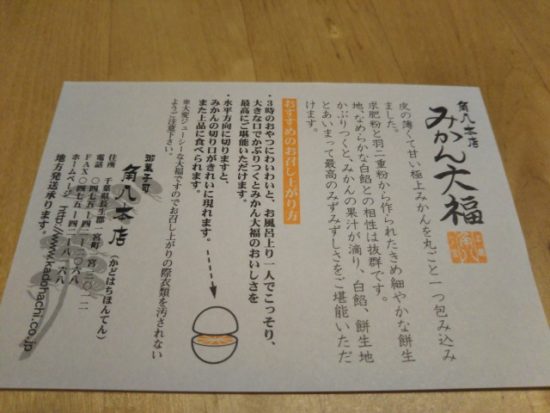 角八本店
みかん大福
皮の薄くて甘い極上みかんを丸ごと一つ包み込み
ました。
求肥粉と羽二重粉から作られたきめ細やかな餅生
地、なめらかな白餡との相性は抜群です。
かぶりつくと、みかんの果汁が滴り、白餡、餅生地
とあいまって最高のみずみずしさをご堪能いただ
けます。
おすすめのお召し上がり方
・3時のおやつにわいわいと、お風呂上り一人でこっそり、
大きな口でかぶりつくとみかん大福のおいしさを
最高にご堪能いただけます。
・水平方向に切りますと、
みかんの切り口がきれいに現れます。
また上品に食べられます。
※大変ジューシーな大福ですのでお召し上がりの際衣類を汚されない
ようご注意下さい。
御菓子司
角八本店
(かどはちほんてん)
住所 千葉県長生郡一宮町一宮
ホームページ http://www.kadohachi.co.jp
地方発送承ります。